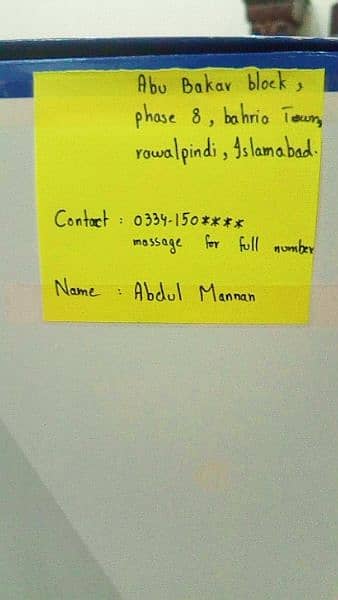 Abu Bakar block,
phase 8, bahria Town,
rawalpindi, Islamabad.
Contact : 0334-150****
massage for full number
Name : Abdul Mannan